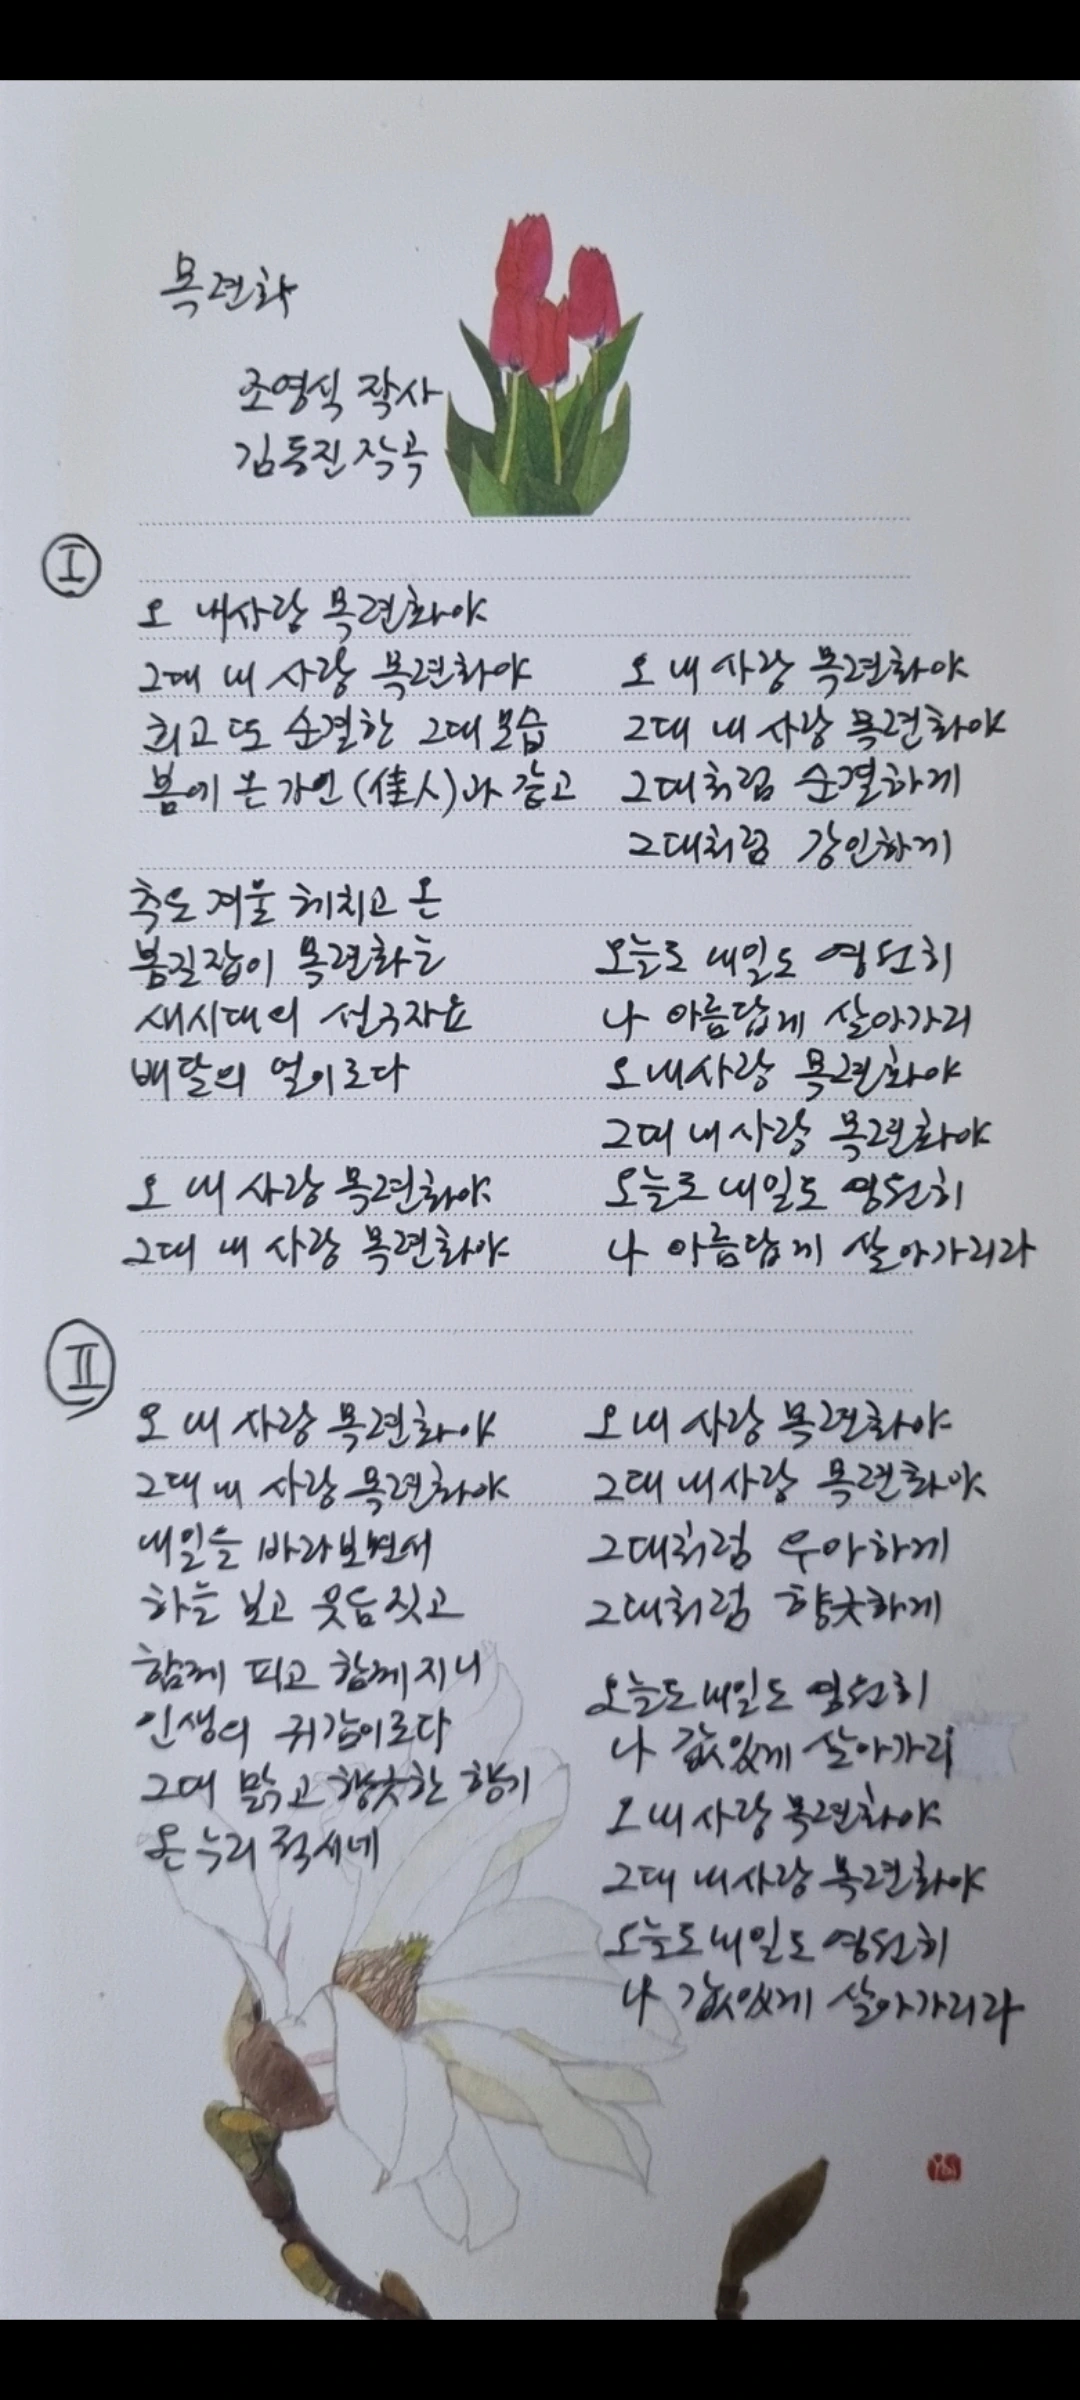 목련화
조영식 작사
김동진 작곡
I
오 내사랑 목련화야
그대 내 사랑 목련화야
희고 또 순결한 그대 모습
봄에 온 가인(佳人)과 같고
추운 겨울 헤치고 온
봄길잡이 목련화는
새시대의 선구자요
배달의 얼이로다
오 내 사랑 목련화야
그대 내 사랑 목련화야
오 내 사랑 목련화야
그대 내 사랑 목련화야
그대처럼 순결하게
그대처럼 강인하게
오늘도 내일도 영원히
나 아름답게 살아가리
오 내사랑 목련화야
그대 내 사랑 목련화야
오늘도 내일도 영원히
나 아름답게 살아가리라
II
오 내 사랑 목련화야
그대 내 사랑 목련화야
내일을 바라보면서
하늘 보고 웃음짓고
함께 피고 함께 지니
인생의 귀감이로다
그대 맑고 향긋한 향기
온누리 적시네
오 내 사랑 목련화야
그대 내사랑 목련화야
그대처럼 우아하게
그대처럼 향긋하게
오늘도 내일도 영원히
나 값있게 살아가리
오 내 사랑 목련화야
그대 내사랑 목련화야
오늘도 내일도 영원히
나 값있게 살아가리라